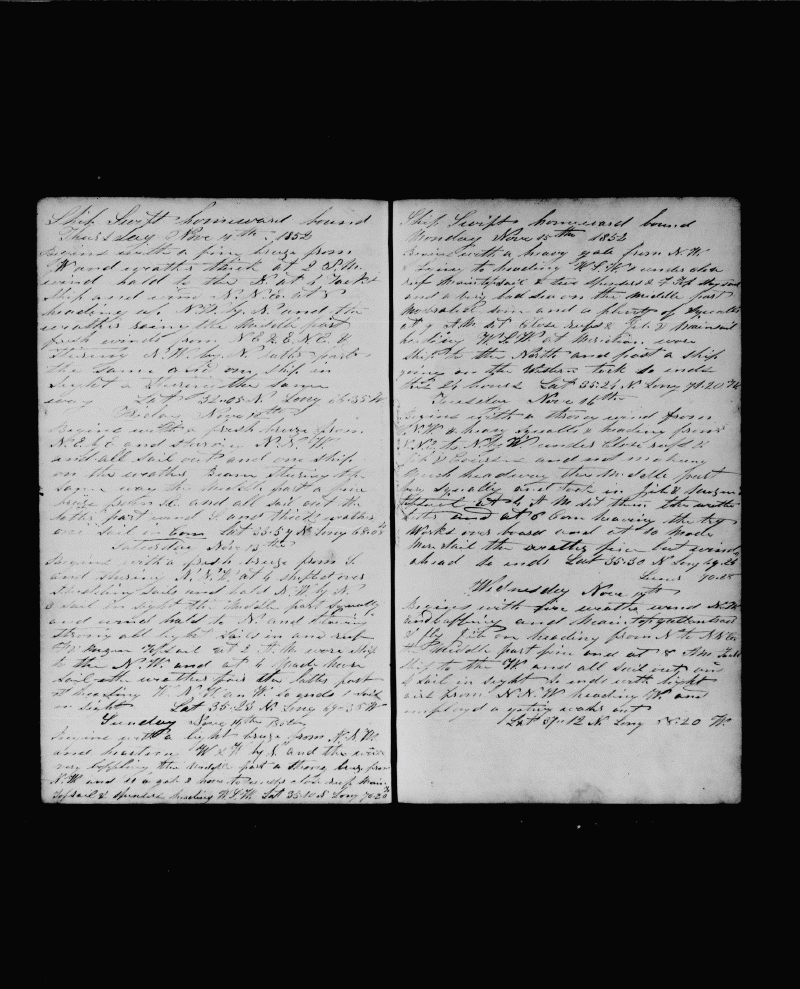 Ship Swift homeward bound
Thursday Nove 11th 1852
Begins with a fine breze from
W and weather thick at 2 P.M.
wind hald to the N. at 4 Tacked
Ship and wind N.N.E. at 8
heading up N.W. by N. and the
weather rainy the Middle part
fresh winds from N.E. & E.N.E. &
Stering N.W. by N. latter part
the Same and one ship in
Sight a Stering the Same
way Lat 32=05 N. Long
Friday Nove 12th
Begins with a fresh breze from
N.E. & E and stering N.N.W.
and all Sail out and one Ship
on the weather Beam Stering the
Same way the Middle part a fine
breze from and all Sail out the
latter part wind S. and thick weather
one Sail in Com Lat 33=57 N. Long 68=05
Saturday Nov 13th
Begins with a fresh breze from S.
and stering N.N.W. at 4 shifted over
Studding Sails and hald N.W. by N.
a Sail in Sight the Middle part Squally
and wind hald to N. and blowing
strong all light Sails in and reef
Topsail at 2 A.M. wore ship
to the N.W. and at 6 made more
Sail the weather fair the latter part
heading W.N.W. an W. So ends 1 Sail
in Sight Lat 35=23 N. Long 69=35 W
Sunday Nove 14th
Begins with a light breze from N.N.W.
and heading W & W by S. and the
very the Middle part a Strong breze from
N.W. and a gale & hove to under close reef Main
Topsail & Spencers heading W.S.W. Lat N Long
Ship Swift homeward bound
Monday Nove 15th 1852
Begins with a heavy gale from N.W.
& Lying to heading W.S.W. under close
reef Maintopsail & two Spencers & F.T.M. Staysail
and a very bad Sea on the Middle part
Moderated Som and a plenty of Squalls
at 7 A.M. Set Close reefs & Jib & Mainsail
heading W.S.W. at Meridian wore
Ship to the North and past a ship
going on the Western tack So ends
this 24 hours Lat 35=24 N Long 71=20 W
Tuesday Nove 16th
Begins with a strong wind from
N.W. & heavy Squalls & heading from
to N.by W. under Close reefs &
and not making
Much headway the Middle part
More Squally and took in Jib &
Topsail at 4 A.M Set them the weather
and at 8 Com heaving the try
Works over board and at 10 Made
More Sail the weather fine but wind
ahead So ends Lat 35=30 N Long 69=26
Lunar 70=28
Wednesday Nove 17th
Begins with fine weather wind
and and Main topgallantsail
& fly Jib on heading from N to
the Middle part fine and at 8 A.M. Tackd
Ship to the W. and all Sail out one
Sail in sight So ends with light
airs from N.N.W. heading W. and
employd a geting oaks out
Lat 37=12 N Long 68=20 W.